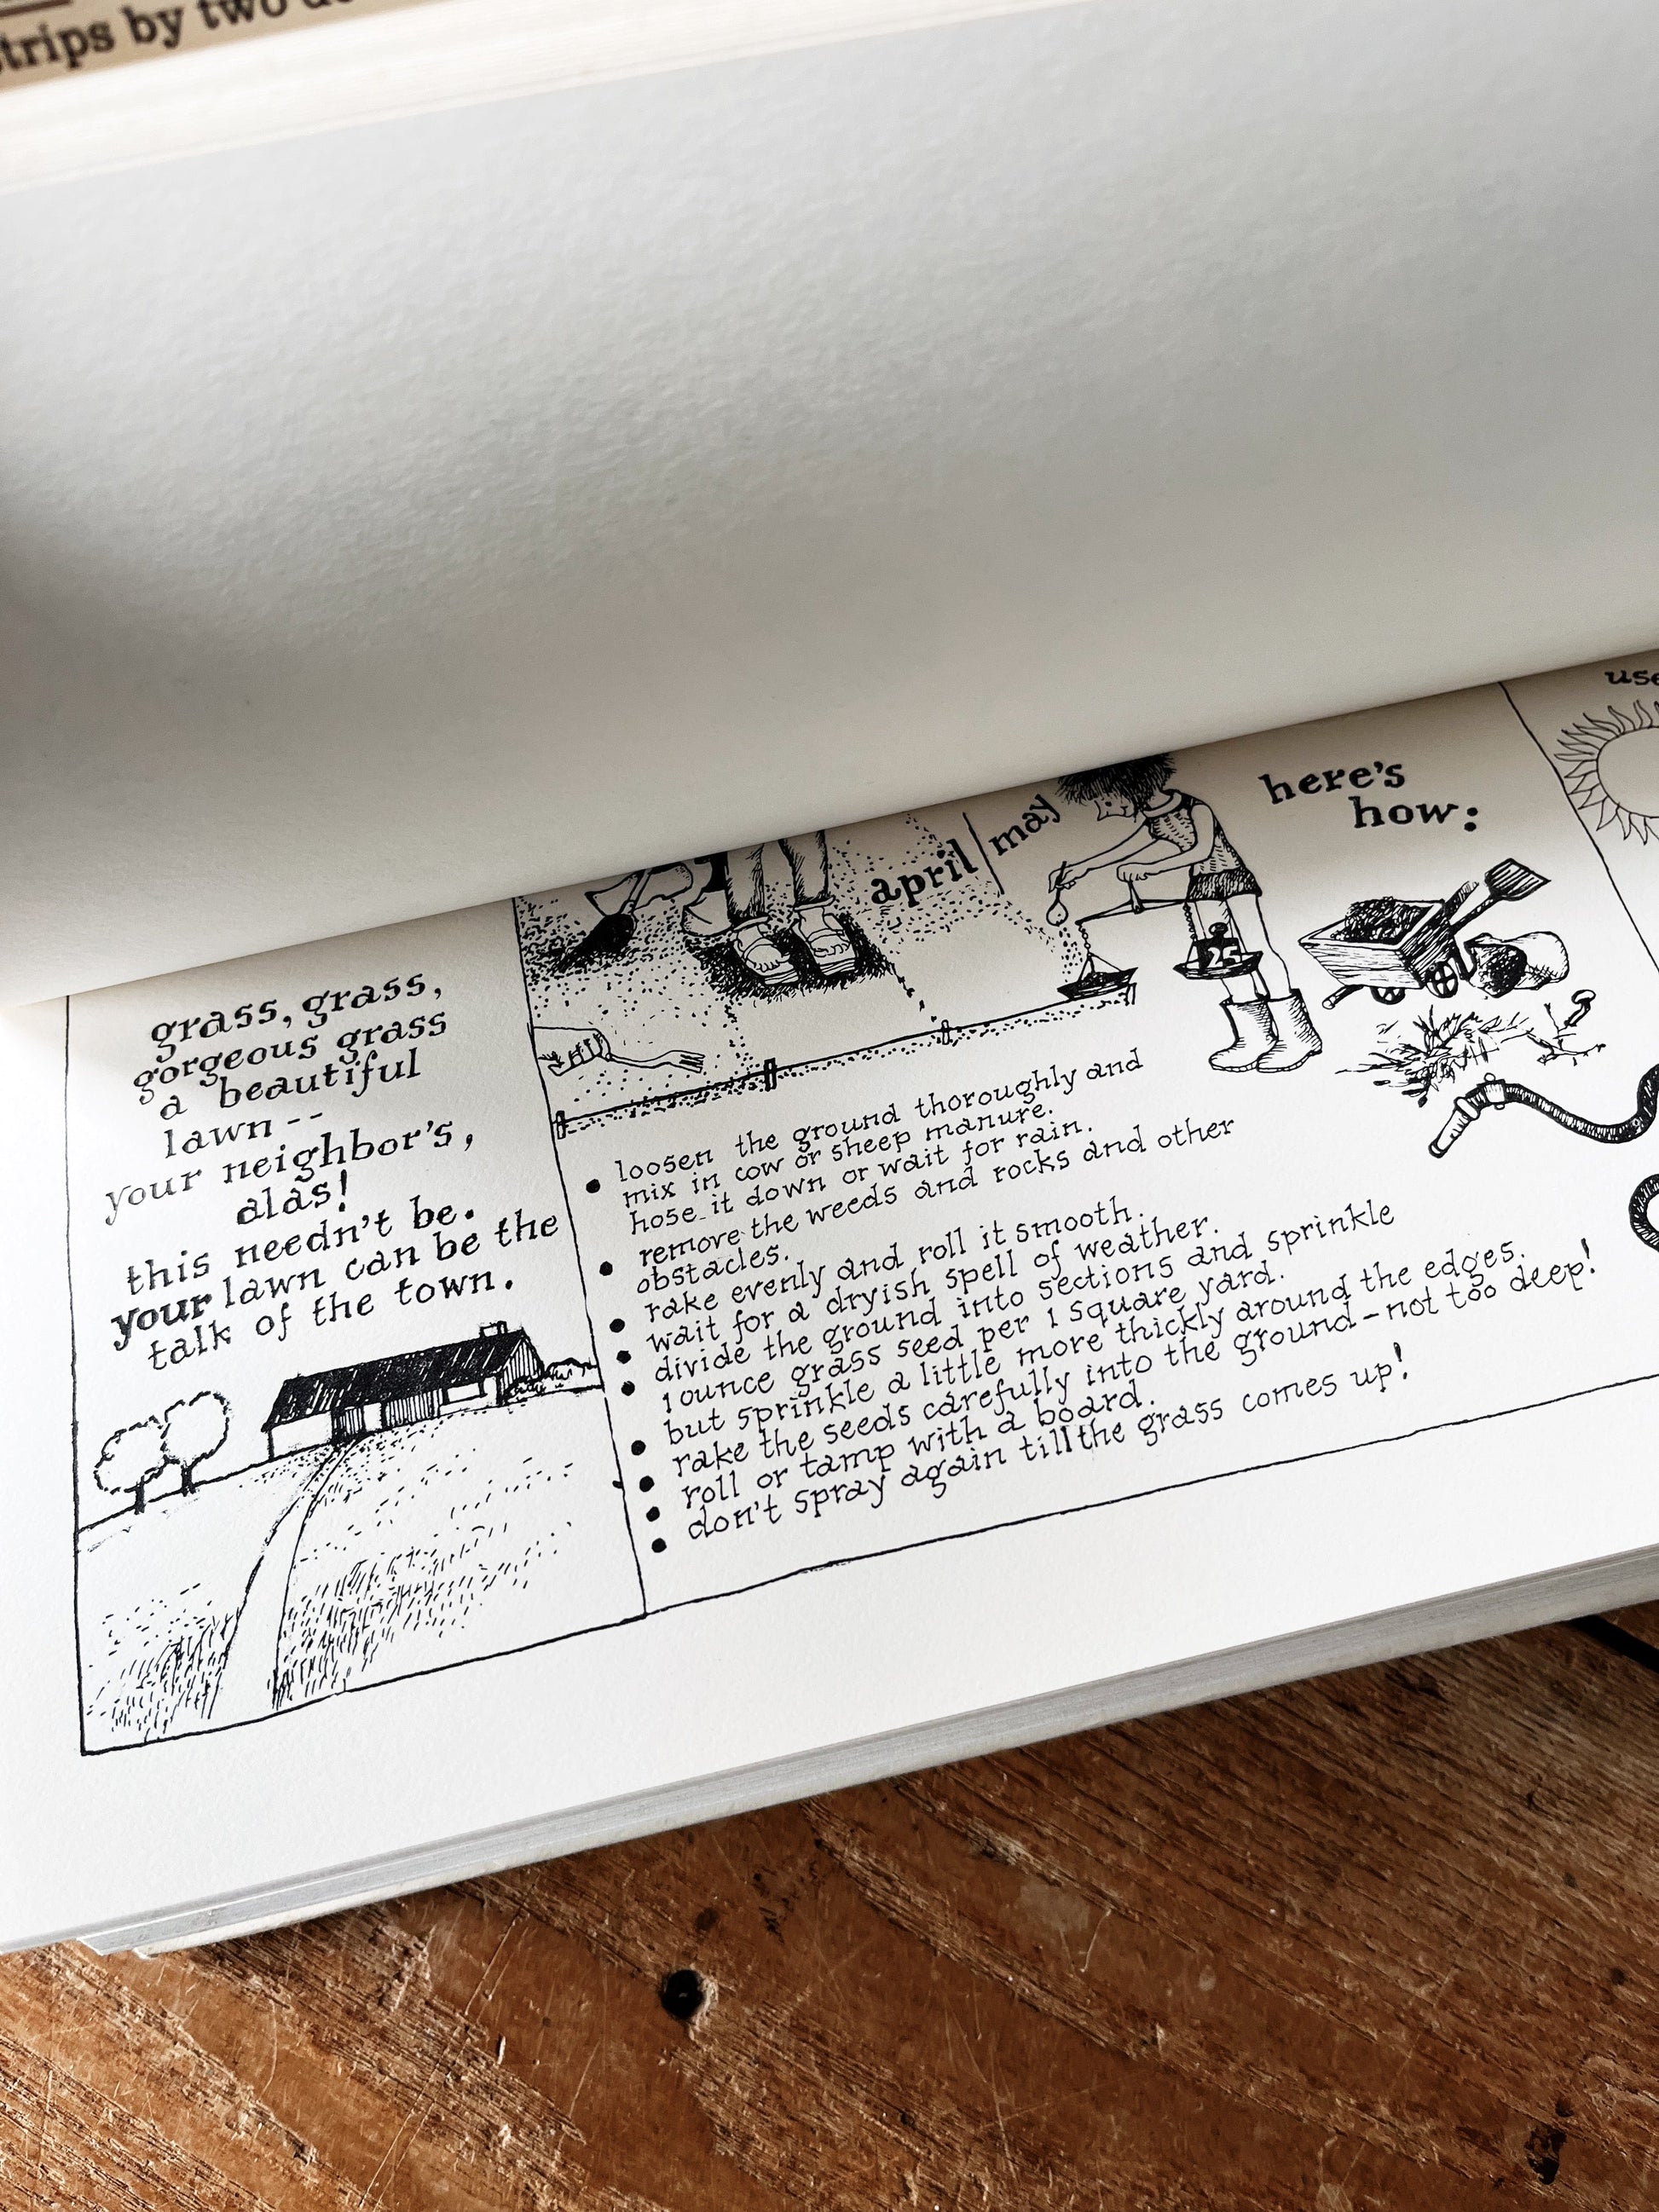 strips by two
use
here's
how:
april
may
25
grass, grass,
gorgeous grass
a beautiful
lawn--
your neighbor's,
alas!
this needn't be.
your lawn can be the
talk of the town.
• loosen the ground thoroughly and
mix in cow or sheep manure.
hose it down or wait for rain.
• remove the weeds and rocks and other
obstacles.
• rake evenly and roll it smooth.
• wait for a dryish spell of weather.
• divide the ground into sections and sprinkle
1 ounce grass seed per 1 square yard.
• but sprinkle a little more thickly around the edges.
• rake the seeds carefully into the ground-not too deep!
• roll or tamp with a board.
• don't spray again till the grass comes up!